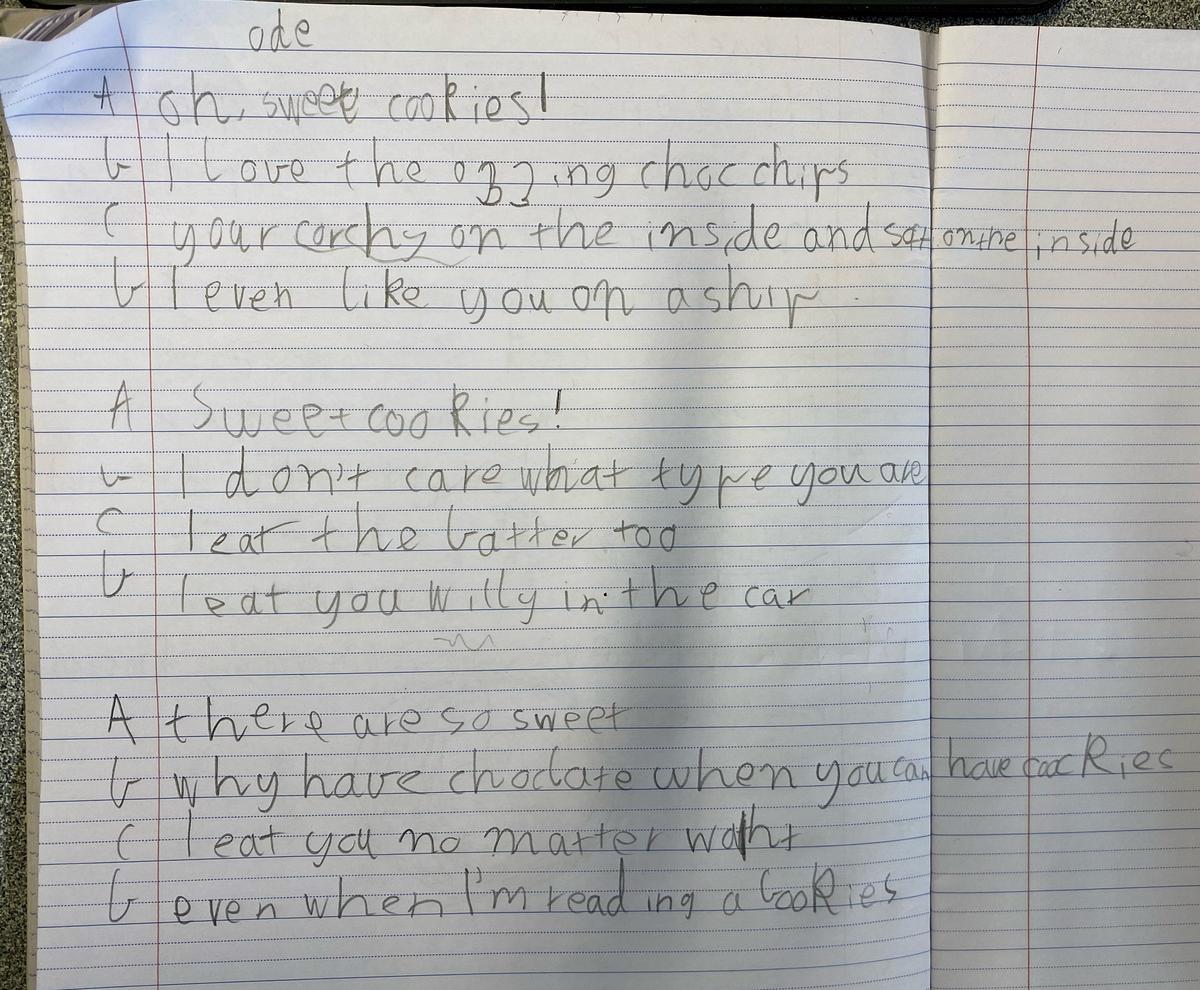 ode
A oh, sweet cookies!
b I love the ozzing choc chips
c your corchy on the inside and soft on the inside
b I even like you on a ship
A Sweet cookies!
b I don't care what type you are
c I eat the batter too
b I eat you willy in the car
A there are so sweet
b why have choclate when you can have cookies
c I eat you no matter waht
b even when I'm reading a bookies